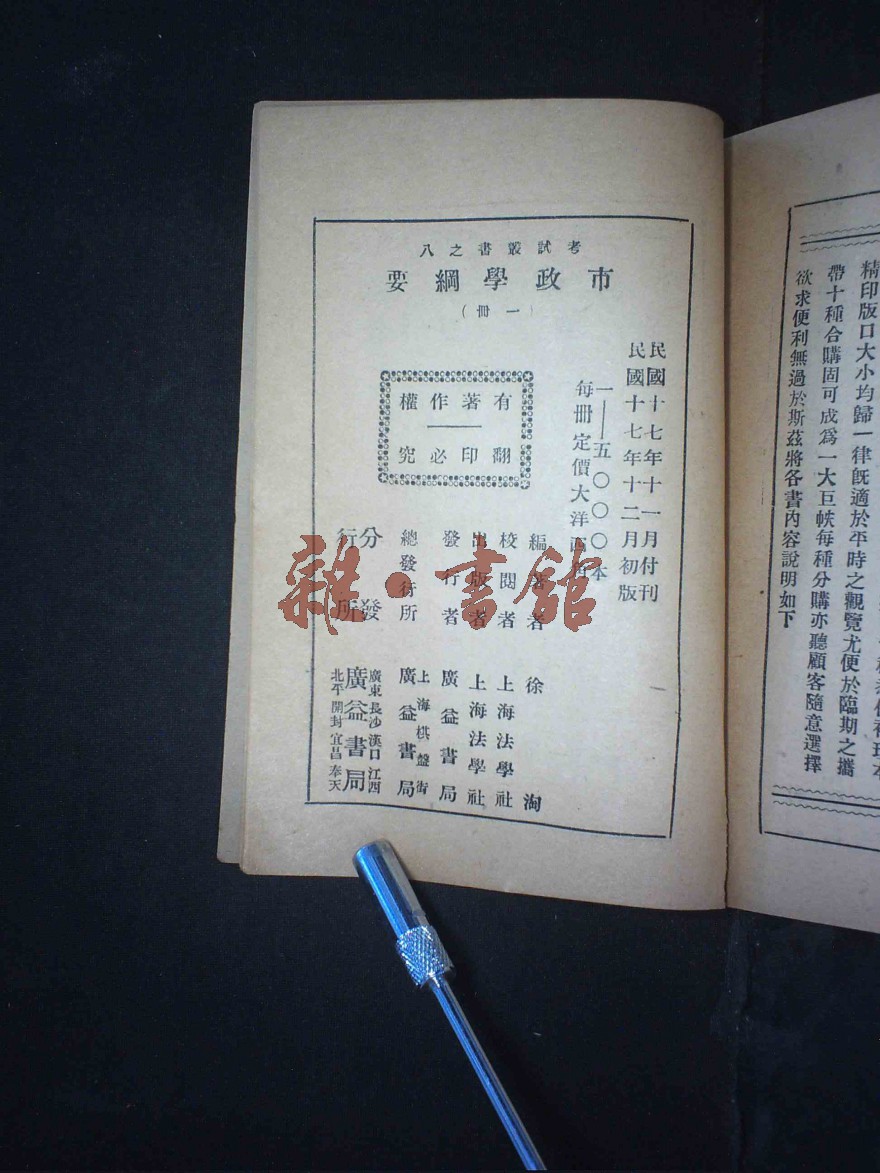 考試叢書之八
市政學綱要
（一冊）
民國十七年十一月付刊
民國十七年十二月初版
一——五〇〇〇本
每冊定價大洋
有著作權
翻印必究
編著者 徐洵
校閱者 上海法學社
出版者 上海法學社
發行者 廣益書局
總發行所 上海棋盤街 廣益書局
分發行所 廣東長沙漢口江西 廣益書局 北平開封宜昌奉天
精印版口大小均歸一律旣適於平時之觀覽尤便於臨期之攜
帶十種合購固可成為一大巨帙每種分購亦聽顧客隨意選擇
欲求便利無過於斯茲將各書內容說明如下
雜·書館